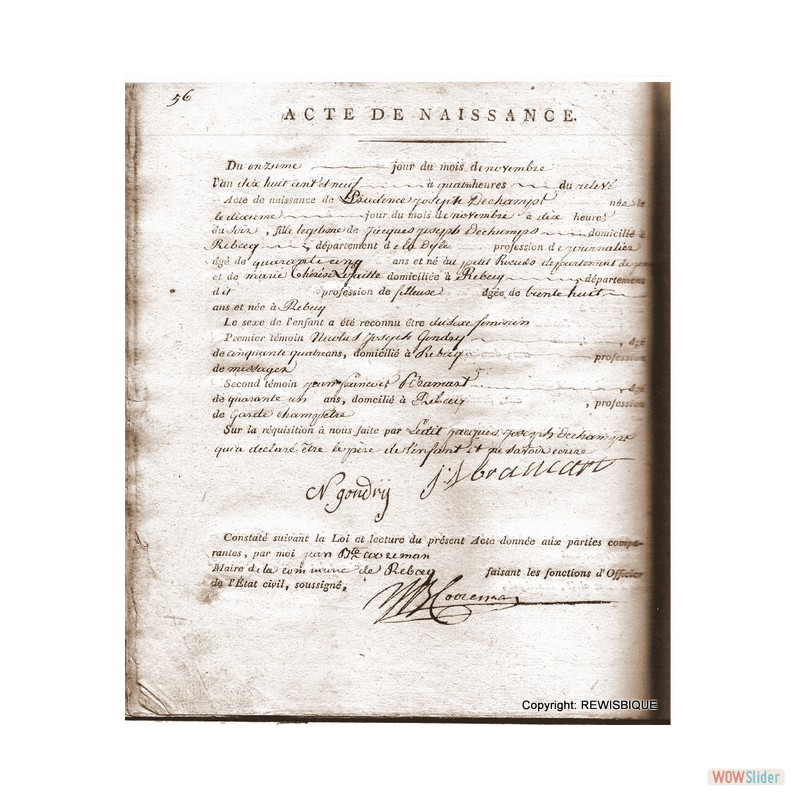 56
ACTE DE NAISSANCE.
Du onzieme jour du mois de novembre
l'an dix huit cent et neuf à quatre heures du relevé
Acte de naissance de Prudence Joseph Dechamps née le
le dixieme jour du mois de novembre à dix heures
du soir, fille legitime de Jacques Joseph Dechamps domicilié à
Rebecq, département de la Dyle profession de journalier
âgé de quarante cinq ans et né au petit Roeulx departement de
et de marie Thérèse domiciliée à Rebecq département
dit profession de fileuse âgée de trente huit
ans et née à Rebecq
Le sexe de l'enfant a été reconnu être du sexe feminin
Premier témoin Nicolas Joseph Gondry, âgé
de cinquante quatre ans, domicilié à Rebecq profession
de messager
Second témoin jean françois, âgé
de quarante un ans, domicilié à Rebecq, profession
de Garde champetre
Sur la réquisition à nous faite par Ledit Jacques Joseph Dechamps
qui a declaré être le père de l'enfant et ne savoir ecrire
N gondry
Constaté suivant la Loi et lecture du présent Acte donnée aux parties compa-
rantes, par moi jean Bte cooreman
Maire de la commune de Rebecq faisant les fonctions d'Officier
de l'État civil, soussigné,
Cooreman
Copyright: REWISBIQUE
WOWSlider